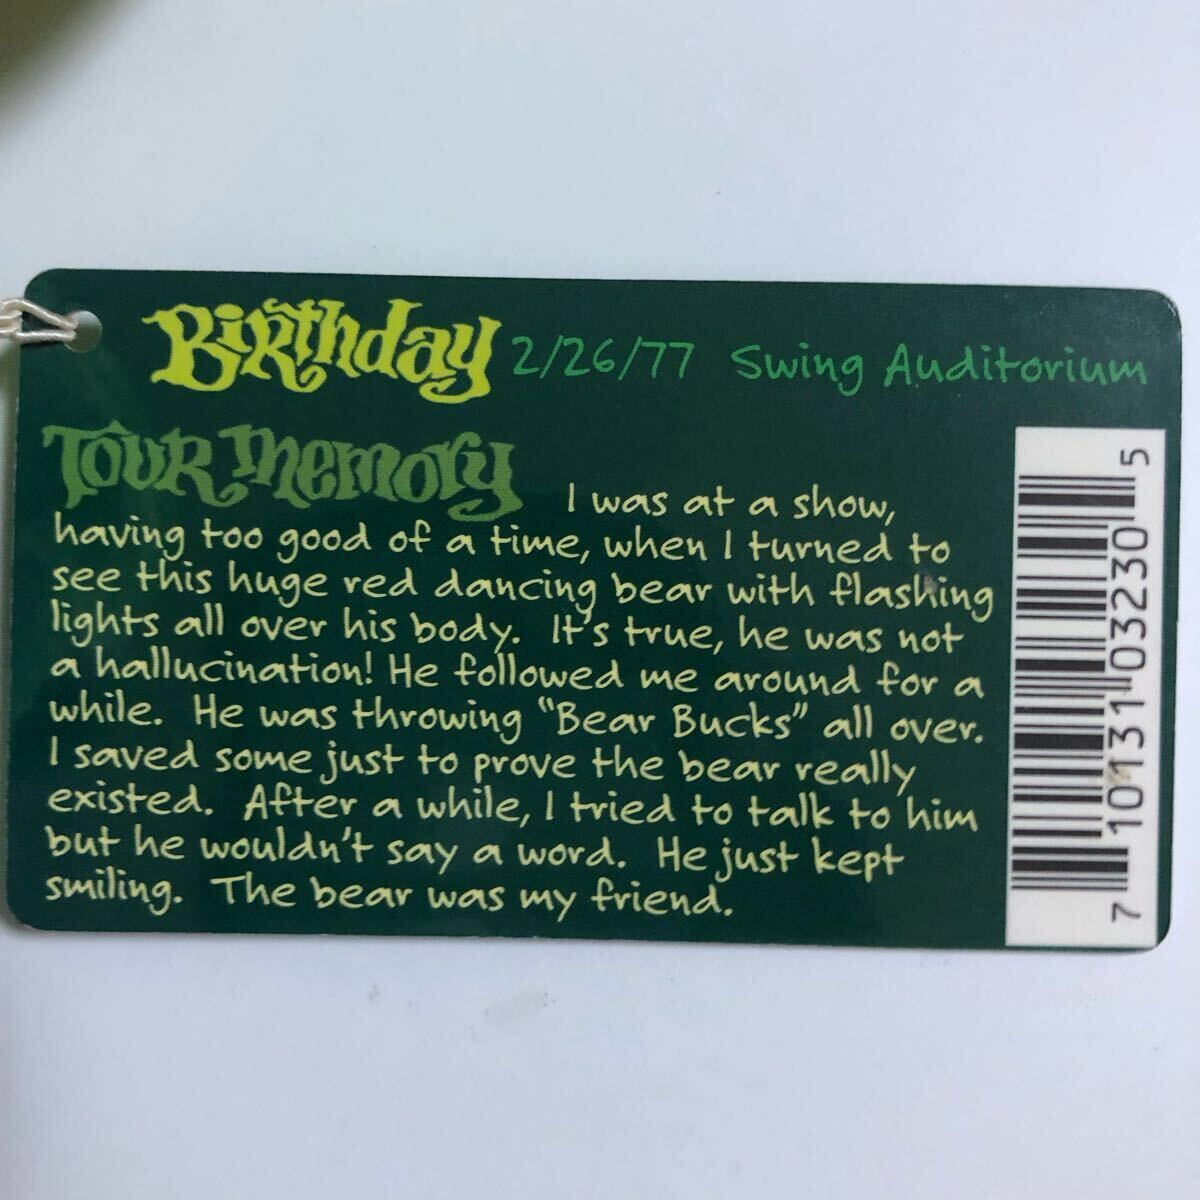 Birthday 2/26/77 Swing Auditorium
Tour Memory I was at a show,
having too good of a time, when I turned to
see this huge red dancing bear with flashing
lights all over his body. It's true, he was not
a hallucination! He followed me around for a
while. He was throwing "Bear Bucks" all over.
I saved some just to prove the bear really
existed. After a while, I tried to talk to him
but he wouldn't say a word. He just kept
smiling. The bear was my friend.
7 10131 03230 5